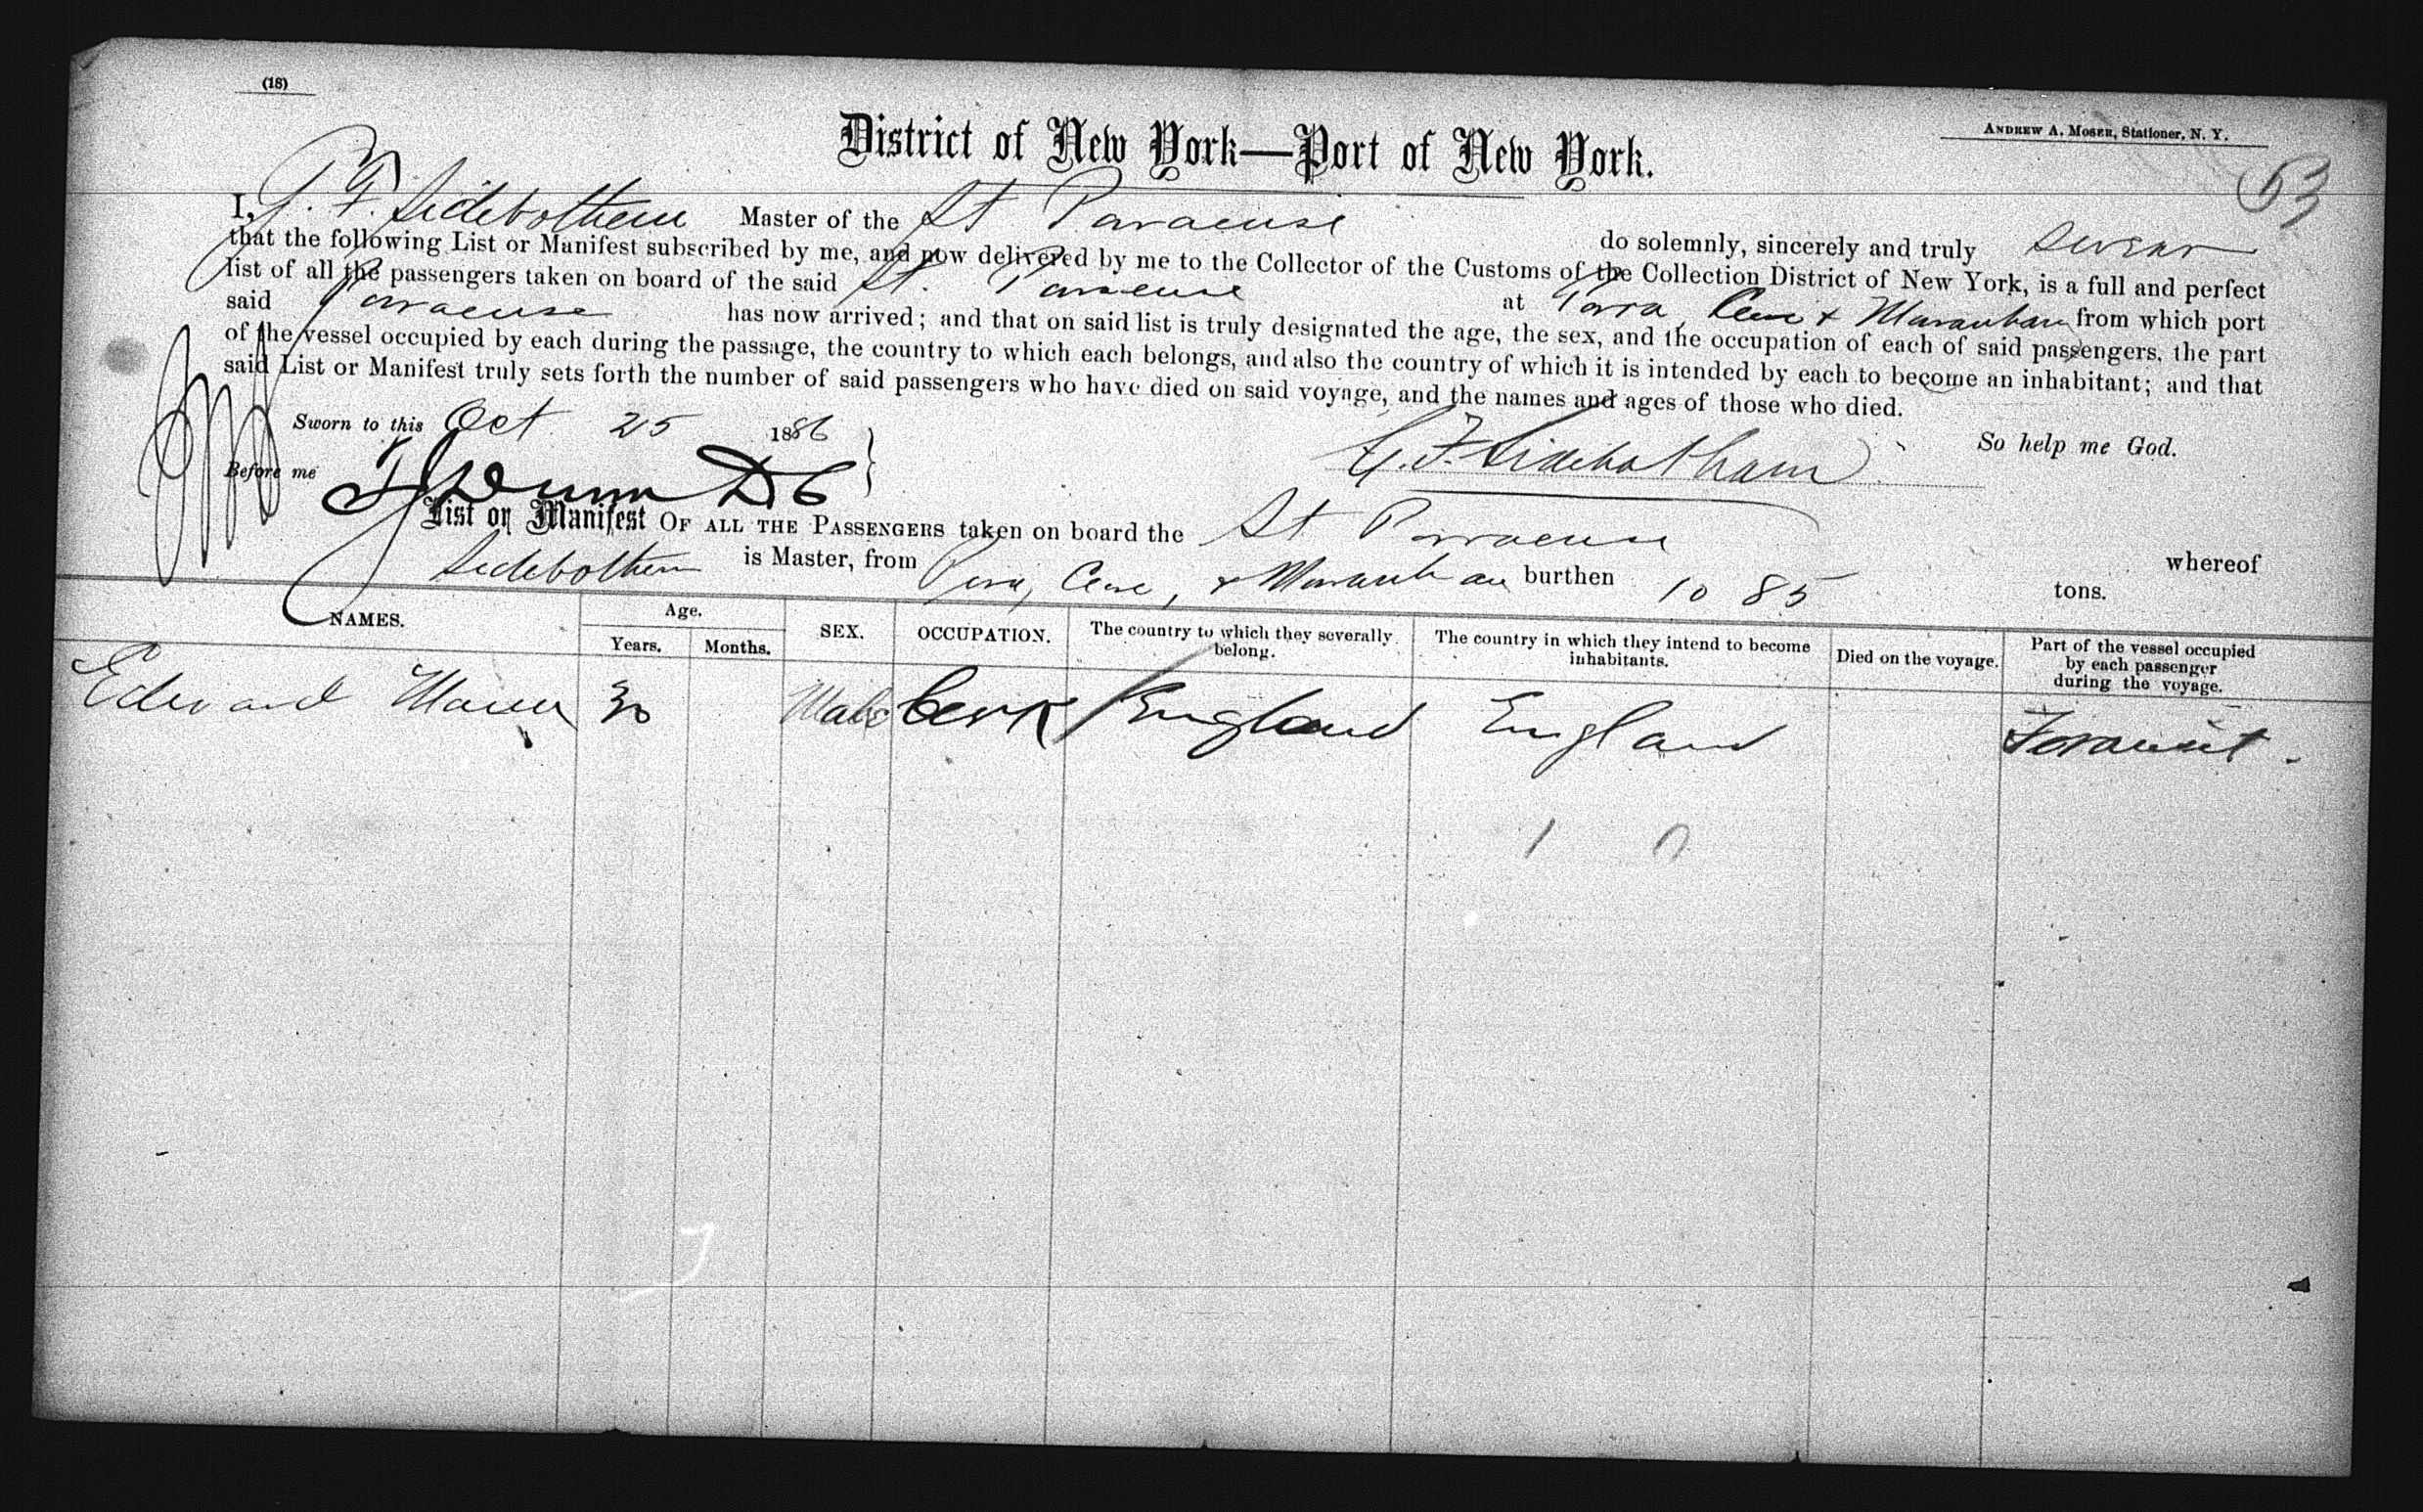 (18)
ANDREW A. MOSER, Stationer, N. Y.
District of New York—Port of New York.
53
I, G. F. Sidebothem Master of the St Paraense do solemnly, sincerely and truly swear
that the following List or Manifest subscribed by me, and now delivered by me to the Collector of the Customs of the Collection District of New York, is a full and perfect
list of all the passengers taken on board of the said St. Paraense at Para, Ceara & Maranham from which port
said Paraense has now arrived; and that on said list is truly designated the age, the sex, and the occupation of each of said passengers, the part
of the vessel occupied by each during the passage, the country to which each belongs, and also the country of which it is intended by each to become an inhabitant; and that
said List or Manifest truly sets forth the number of said passengers who have died on said voyage, and the names and ages of those who died.
Sworn to this Oct 25 1886
So help me God.
Before me Dunn DC
G. F. Sidebotham
List or Manifest OF ALL THE PASSENGERS taken on board the St Paraense whereof
Sidebothem is Master, from Para, Ceara, & Maranham burthen 1085 tons.
NAMES. Age. Years. Months. SEX. OCCUPATION. The country to which they severally belong. The country in which they intend to become inhabitants. Died on the voyage. Part of the vessel occupied by each passenger during the voyage.
Edward 30 Male Clerk England England Transit.
1 0